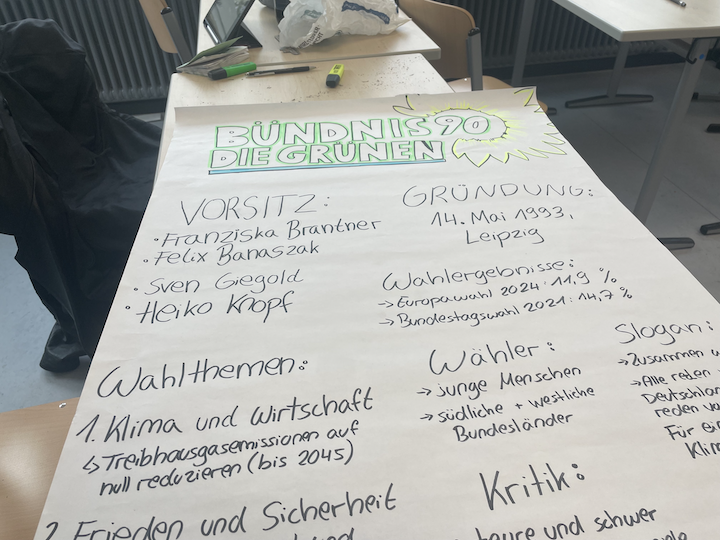 BÜNDNIS 90
DIE GRÜNEN
VORSITZ:
• Franziska Brantner
• Felix Banaszak
• Sven Giegold
• Heiko Knopf
GRÜNDUNG:
14. Mai 1993,
Leipzig
Wahlergebnisse:
→ Europawahl 2024: 11,9 %
→ Bundestagswahl 2021: 14,7 %
Wahlthemen:
1. Klima und Wirtschaft
↳ Treibhausgasemissionen auf
null reduzieren (bis 2045)
2. Frieden und Sicherheit
und
Wähler:
→ junge Menschen
→ südliche + westliche
Bundesländer
Slogan:
→ Zusammen
→ Alle reden
Deutschland
reden
Für ein
Klim
Kritik:
teure und schwer